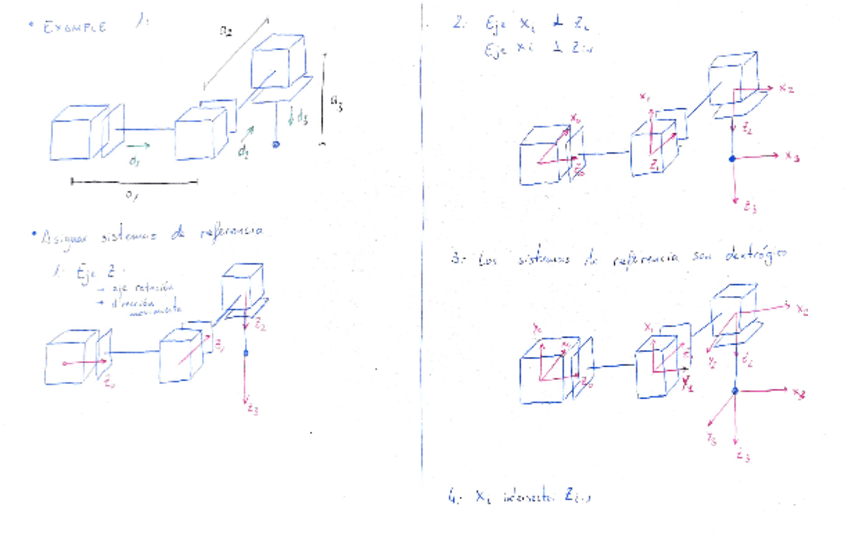 • EXAMPLE 1:
a2
a3
d3
d2
d1
a1
• Asignar sistemas de referencia
1. Eje Z:
→ eje rotación
→ dirección movimiento
Z0
Z1
Z2
Z3
2: Eje xi ⊥ Zi
Eje xi ⊥ Zi-1
X0
Z0
X1
Z1
X2
Z2
X3
Z3
3: Los sistemas de referencia son dextrógiro
Y0
Z0
X1
Y1
X2
Y2
Z2
X3
Y3
Z3
4: Xi intersecta Zi-1